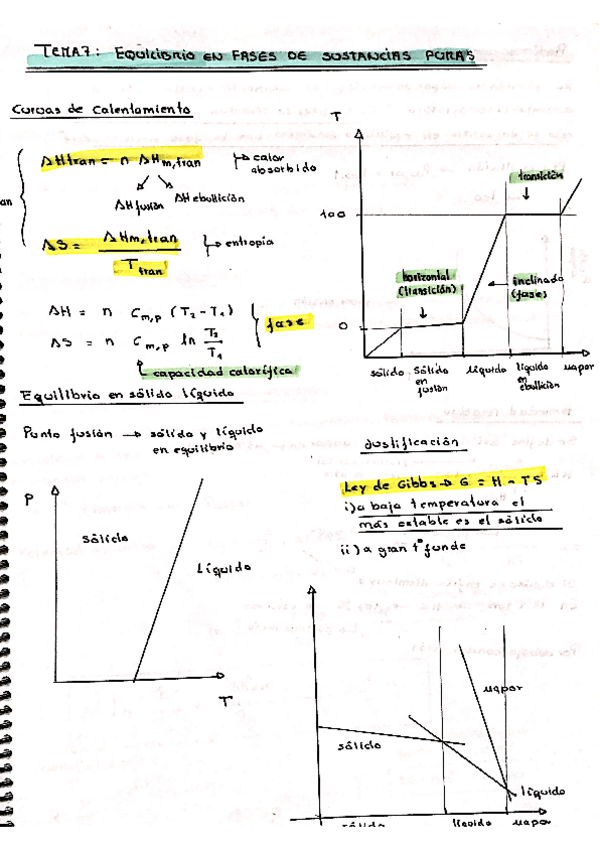 TEMA 7: EQUILIBRIO EN FASES DE SUSTANCIAS PURAS
Curvas de Calentamiento
ΔHtran = n ΔHm,tran → calor absorbido
ΔHfusión ΔHebullición
an
ΔS = ΔHm,tran / Ttran → entropía
ΔH = n Cm,p (T2 - T1)
ΔS = n Cm,p ln T2/T1
fase
capacidad calorífica
T
100
0
transición
horizontal
(transición)
inclinado
(fase)
sólido
Sólido en fusión
líquido
líquido en ebullición
vapor
Equilibrio en sólido líquido
Punto fusión → sólido y líquido
en equilibrio
P
sólido
Líquido
T
Justificación
Ley de Gibbs → G = H - TS
i) a baja temperatura el
más estable es el sólido
ii) a gran tª funde
sólido
vapor
líquido
sólido
líquido
vapor